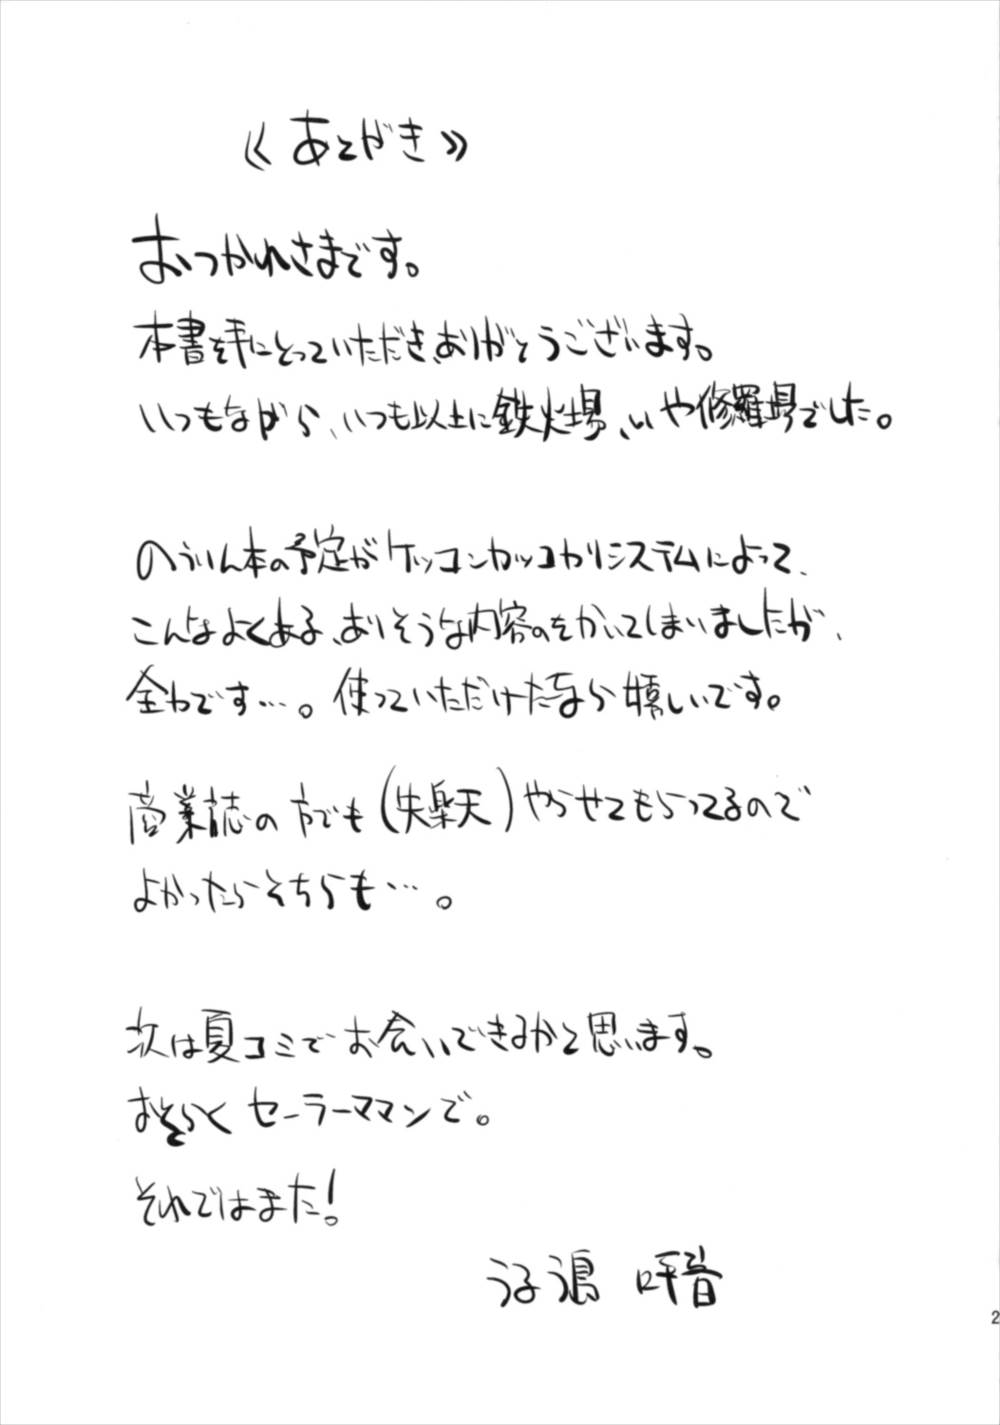 ≪あとがき≫
おつかれさまです。
本書を手にとっていただき、ありがとうございます。
いつもながら、いつも以上に鉄火場、いや修羅場でした。
のうりん本の予定がケッコンカッコカリシステムによって、
こんなよくある、ありそうな内容のをかいてしまいましたが、
全力です…。使っていただけたなら嬉しいです。
商業誌の方でも(失楽天)やらせてもらってるので
よかったらそちらも…。
次は夏コミでお会いできるかと思います。
おそらくセーラーママンで。
それではまた!
うるう島 呼音
2